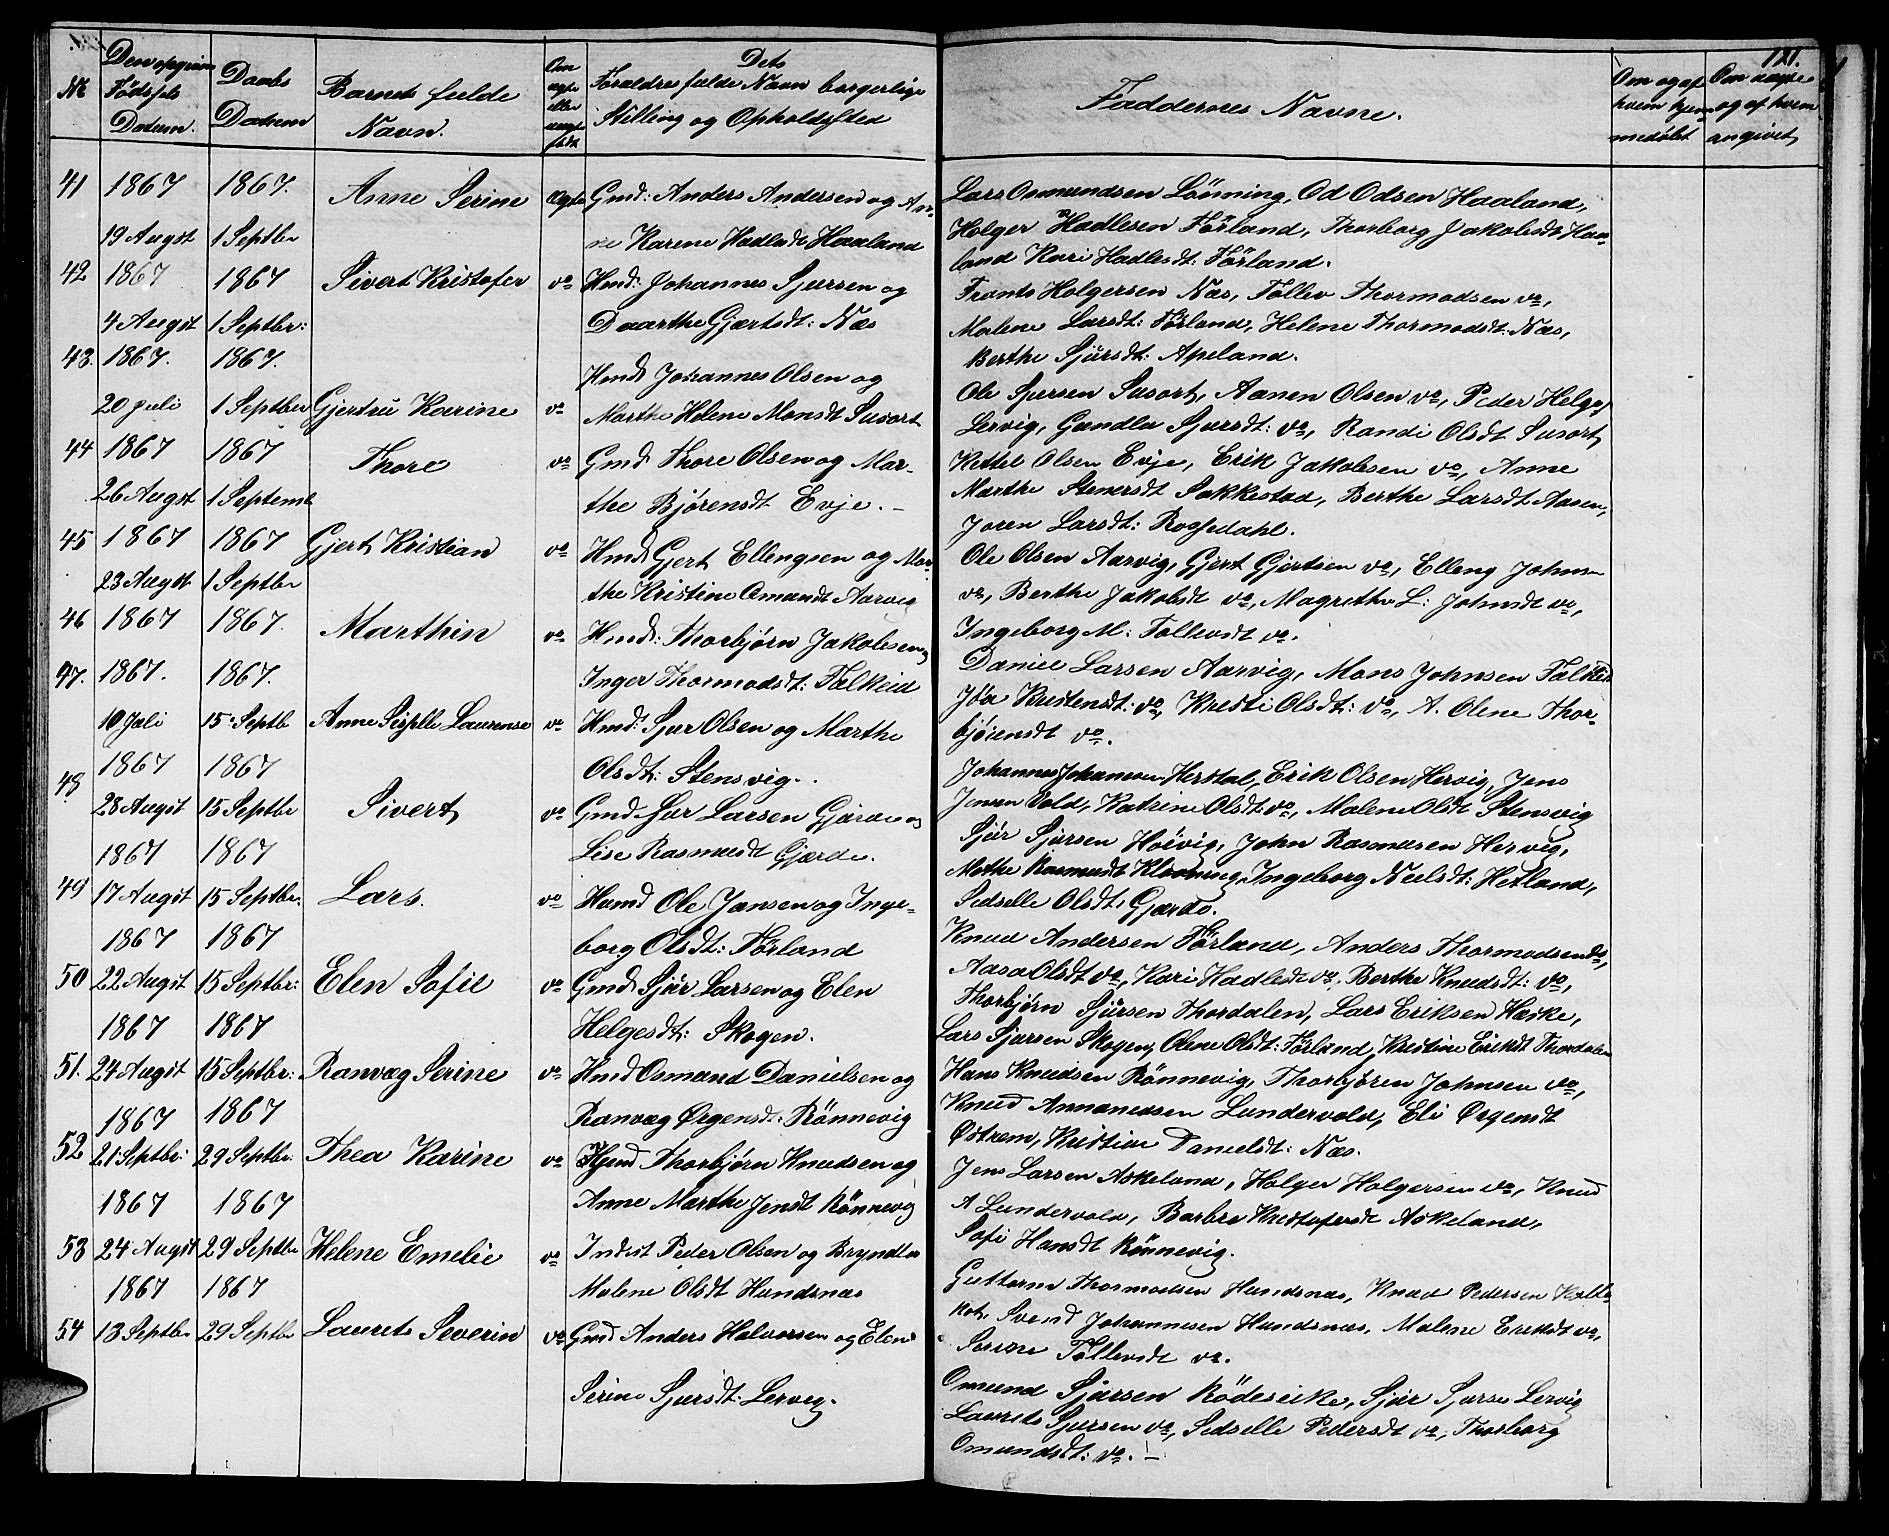 121.
No
Den opgivne Fødsels Datum.
Daabs Datum
Barnets fulde Navn.
Om ægte eller uægte født
Dets Forældres fulde Navn borgerlige Stilling og Opholdssted
Faddernes Navne.
Om og af hvem hjemmedøbt
Om uægte og af hvem angivet
41 1867 19 Augst 1867. 1 Septbr Anne Serine Ægte Gmd: Anders Andersen og An-
ne Karene Hadlsdt Haaland
Lars Osmundsen Lönning, Od Odsen Haaland,
Holger Hadlesen Förland, Thorborg Jakobsdt Haa-
land Kari Hadlesdt: Förland.
42 1867 4 Augst 1867 1 Septbr: Sivert Kristofer do Hmd: Johannes Sjursen og
Daarthe Gjærtsdt: Næs
Frants Holgersen Næs, Tollev Thormodsen do,
Malene Larsdt: Förland, Helene Thormodsdt: Næs,
Berthe Sjursdt: Apeland.
43. 1867. 20 Juli 1867. 1 Septber Gjertru Karine do Hmd Johannes Olsen og
Marthe Helene Monsdt Susort
Ole Sjursen Susort, Aanen Olsen do, Peder Helges
Lervig, Gundla Sjursdt: do, Randi Olsdt Susort,
44 1867 26 Augst 1867 1 Septemb Thore do Gmd Thore Olsen og Mar-
the Bjørensdt Evje. -
Kettel Olsen Evje, Erik Jakobsen do, Anne
Marthe Stenersdt Sakkestad, Berthe Larsdt Aasen,
Joren Larsdt: Rossedahl.
45 1867 23 Augst 1867 1 Septbr Gjert Kristian do Hmd Gjert Ellengsen og Mar-
the Kristine Omundt Aarvig
Ole Olsen Aarvig, Gjert Gjertsen do, Elleng Johnsen
do, Berthe Jakobsdt do, Magrethe L: Johnsdt do,
Ingeborg M: Tollevsdt do.
46 1867 1867. Marthin do Hmd: Thorbjørn Jakobsen og
Inger Thormodsdt: Falkeid
Daniel Larsen Aarvig, Mons Johnsen Falkeid
Jóa Kristensdt: do, Kresti Olsdt: do, A. Olene Thor-
bjørensdt do.
47. 1867. 10 Juli 1867. 15 Septb Anne Sisselle Laurense do Hmd: Sjur Olsen og Marthe
Olsdt: Stensvig.
Johannes Johannesen Herstal, Erik Olsen Hervig, Jens
Jensen Vold, Katrine Olsdt do, Malene Olsdt Stensvig
48 1867 28 Augst 1867 15 Septbr Sivert do Gmd Sjur Larsen Gjærde og
Lise Rasmusdt Gjærde.
Sjur Sjursen Höivig, John Rasmusen Hervig,
Methe Rasmusdt Klovning, Ingeborg Neelsdt: Hetland,
Sedselle Olsdt, Gjærde.
49 1867 17 Augst 1867 15 Septbr. Lars. do Hamd Ole Jansen og Inge-
borg Olsdt: Förland
Knud Andersen Förland, Anders Thormodsen do,
Aasa Olsdt do, Kari Hadlesdt do, Berthe Knudsdt: do,
50 1867 22 Augst 1867 15 Septbr: Elen Sofie do Gmd Sjur Larsen og Elen
Helgesdt: Skogen.
Thorbjørn Sjursen Thordalen, Lars Eriksen Hæske,
Lars Sjursen Skogen, Olene Olsdt: Förland, Kristine Eriksdt Thordalen
51. 1867 24 Augst 1867 15 Septbr: Ranvæg Serine do Hmd Osmund Danielsen og
Ranvæg Ørgensdt: Rönnevig
Hans Knudsen Rönnevig, Thorbjøren Johnsen do,
Knud Ananiassen Lundervold, Eli Ørgensdt
Østrem, Kristine Danielsdt: Næs.
52 1867 21 Septbr: 1867 29 Septbr. Thea Karine do Hmd Thorbjørn Knudsen og
Anne Marthe Jensdt Rönnevig
Jens Larsen Askeland, Holger Holgersen do, Knud
A Lundervold, Barbra Kristofersdt Askeland,
Sofi Hansdt Rönnevig.
53 1867 24 Augst 1867 29 Septbr Helene Emelie do Inderst Peder Olsen og Bryndla
Malene Olsdt Hundsnæs
Guttorm Thormodsen Hundsnæs, Knud Pedersen Kalle-
kot, Svend Johannesen Hundsnæs, Malene Eriksdt do,
Serine Tollevsdt do.
54 1867 13 Septbr 1867 29 Septbr Laurets Severin do Gmd Anders Halvorsen og Elen
Serine Sjursdt: Lervig.
Omund Sjursen Rödseike, Sjur Sjurse Lervig
Laurets Sjursen do, Sedselle Pedersdt do, Thorborg
Omundsdt: do. -